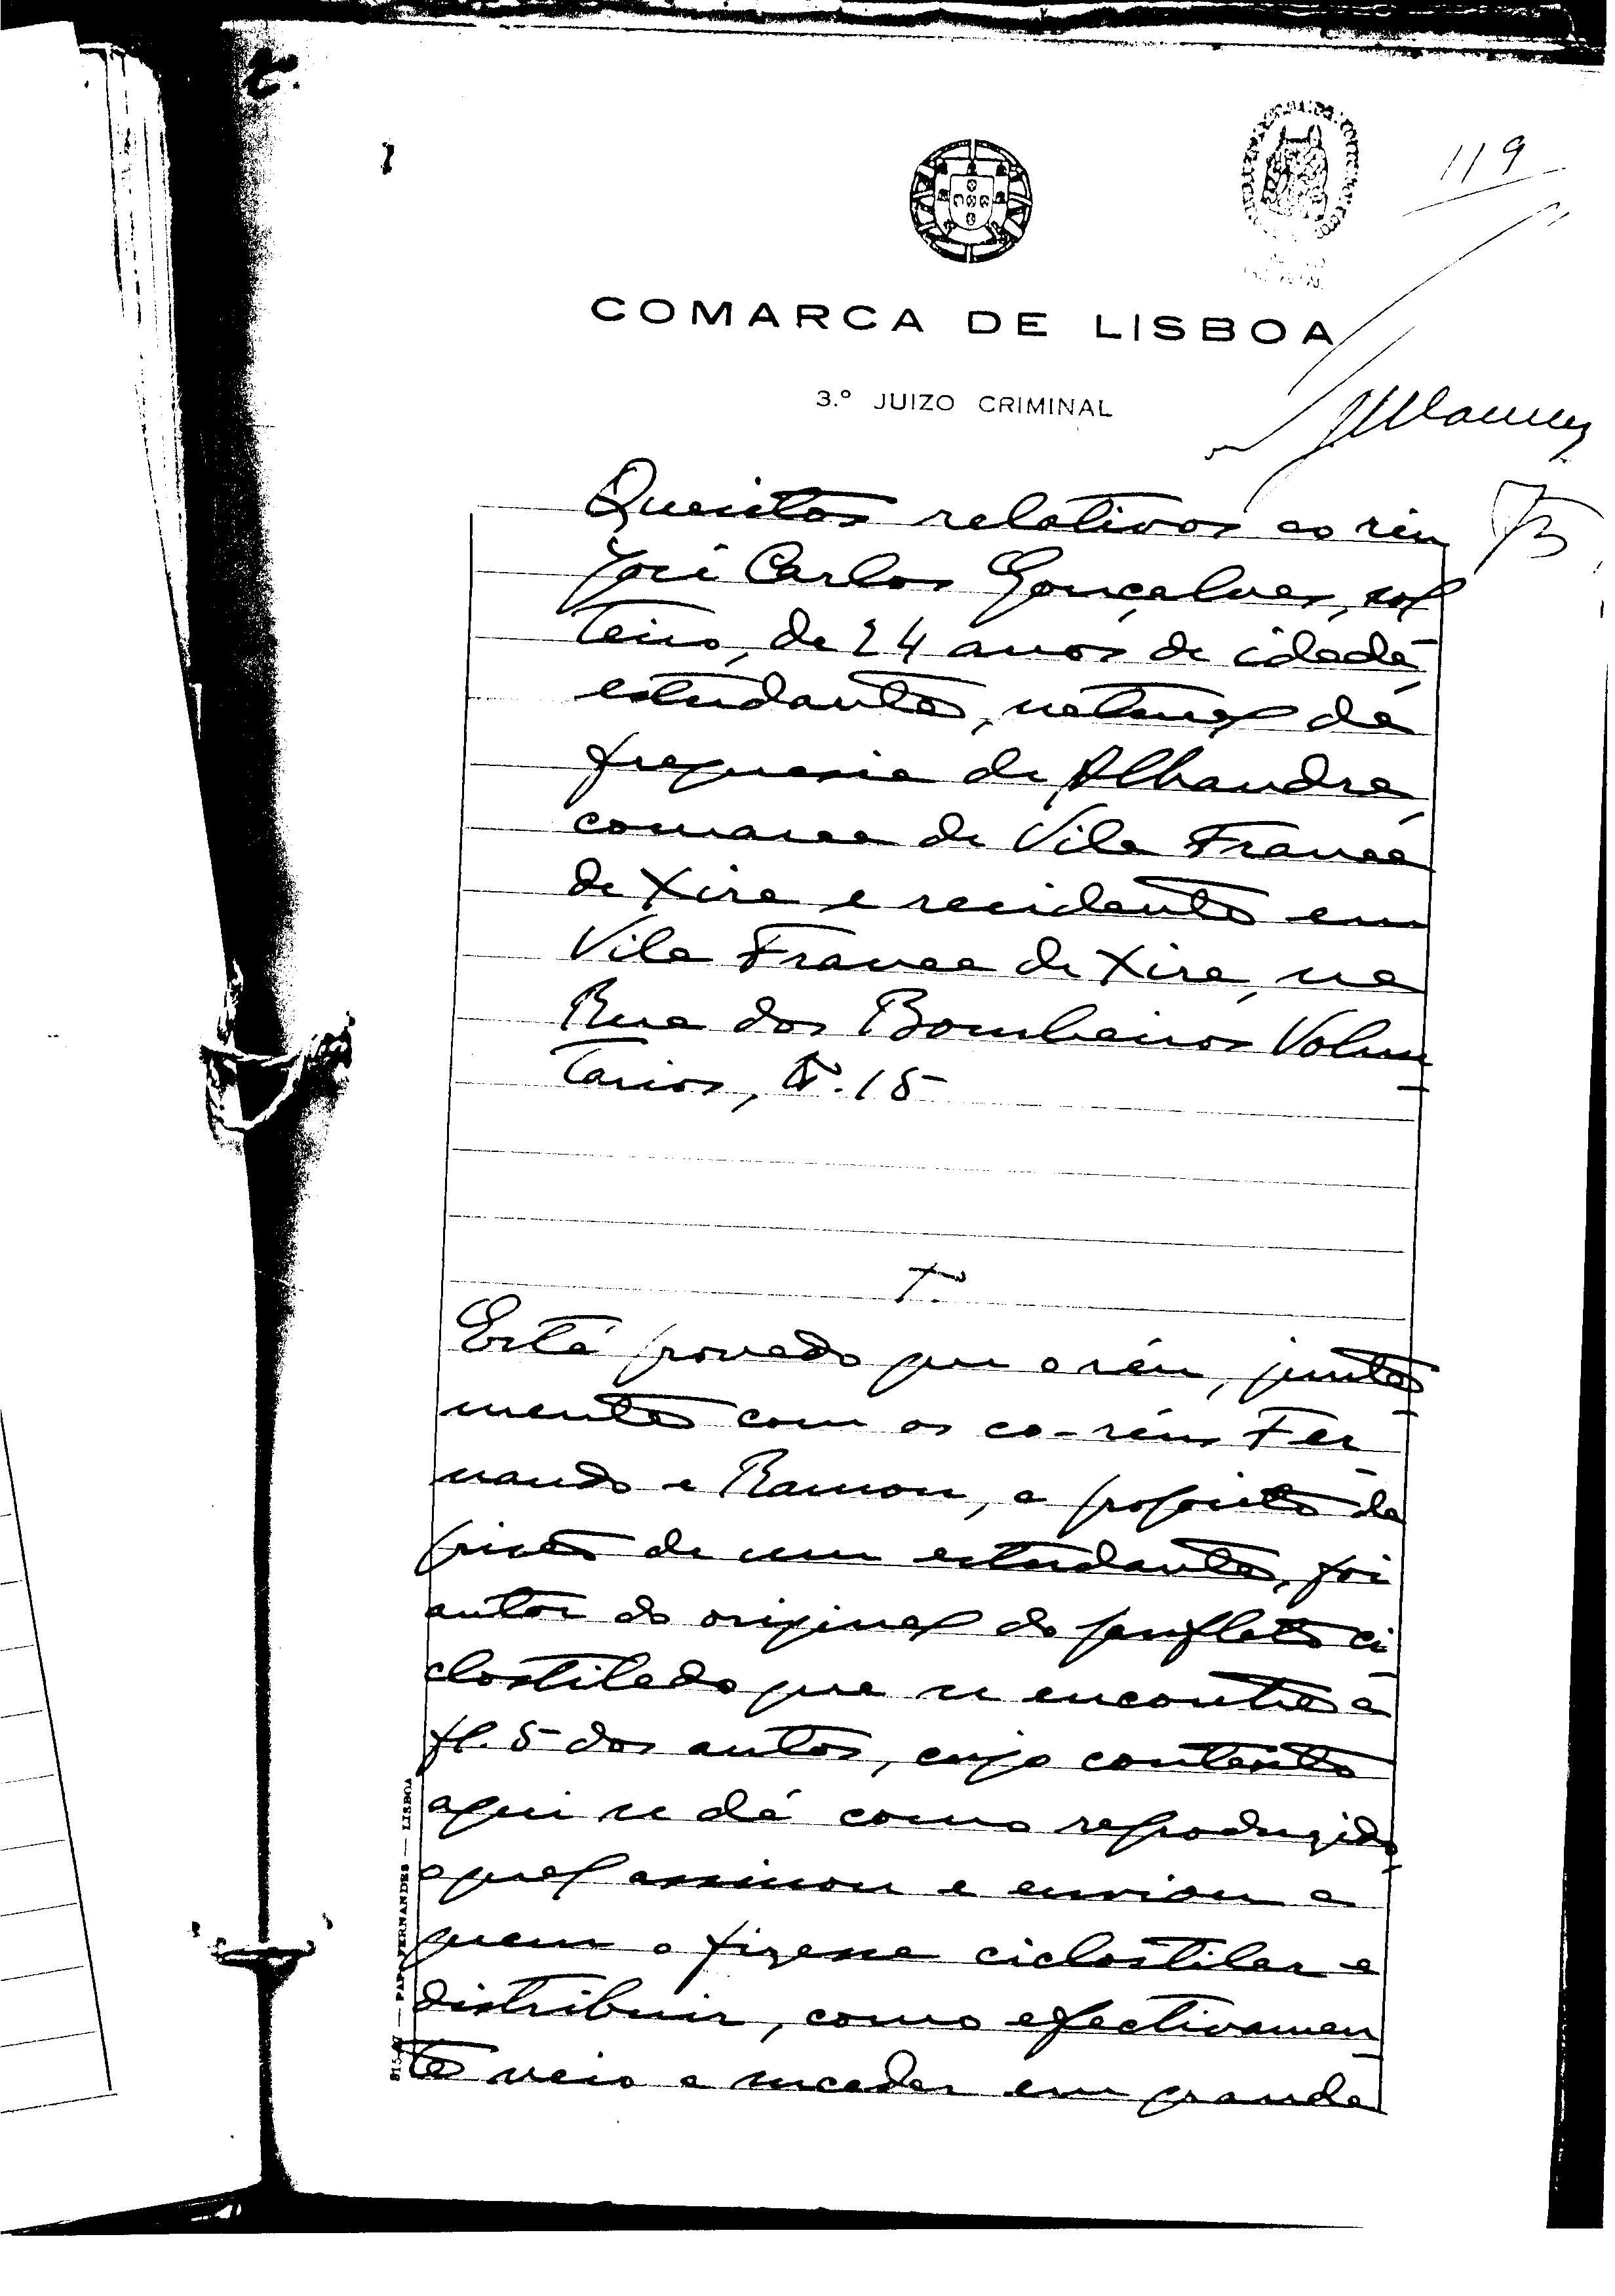 119
COMARCA DE LISBOA
3.º JUIZO CRIMINAL
Quesitos relativos ao réu
José Carlos Gonçalves, sol
teiro, de 24 anos de idade,
estudante, natural da
freguesia de Alhandra,
comarca de Vila Franca
de Xira e residente em
Vila Franca de Xira, na
Rua dos Bombeiros Volun
tarios, nº. 15
1º.
Está provado que o réu, junta
mente com os co-réus Fer
nando e Ramon, a proposito da
prisão de um estudante, foi
autor do original do panfleto ci
clostilado que se encontra a
fl. 5 dos autos, cujo contexto
aqui se dá como reproduzido,
o qual assinou e enviou a
quem o fizesse ciclostilar e
distribuir, como efectivamen
te veio a suceder em grande
PAP. FERNANDES — LISBOA